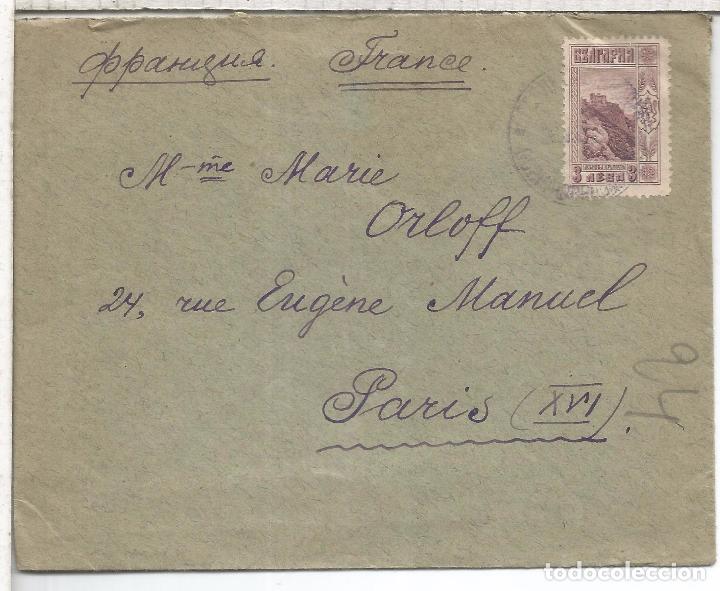 Франция. France.
БЪЛГАРИЯ
3 ЛЕВА 3
M-me Marie
Orloff
24, rue Eugène Manuel
Paris (XVI).
24
todocoleccion.net